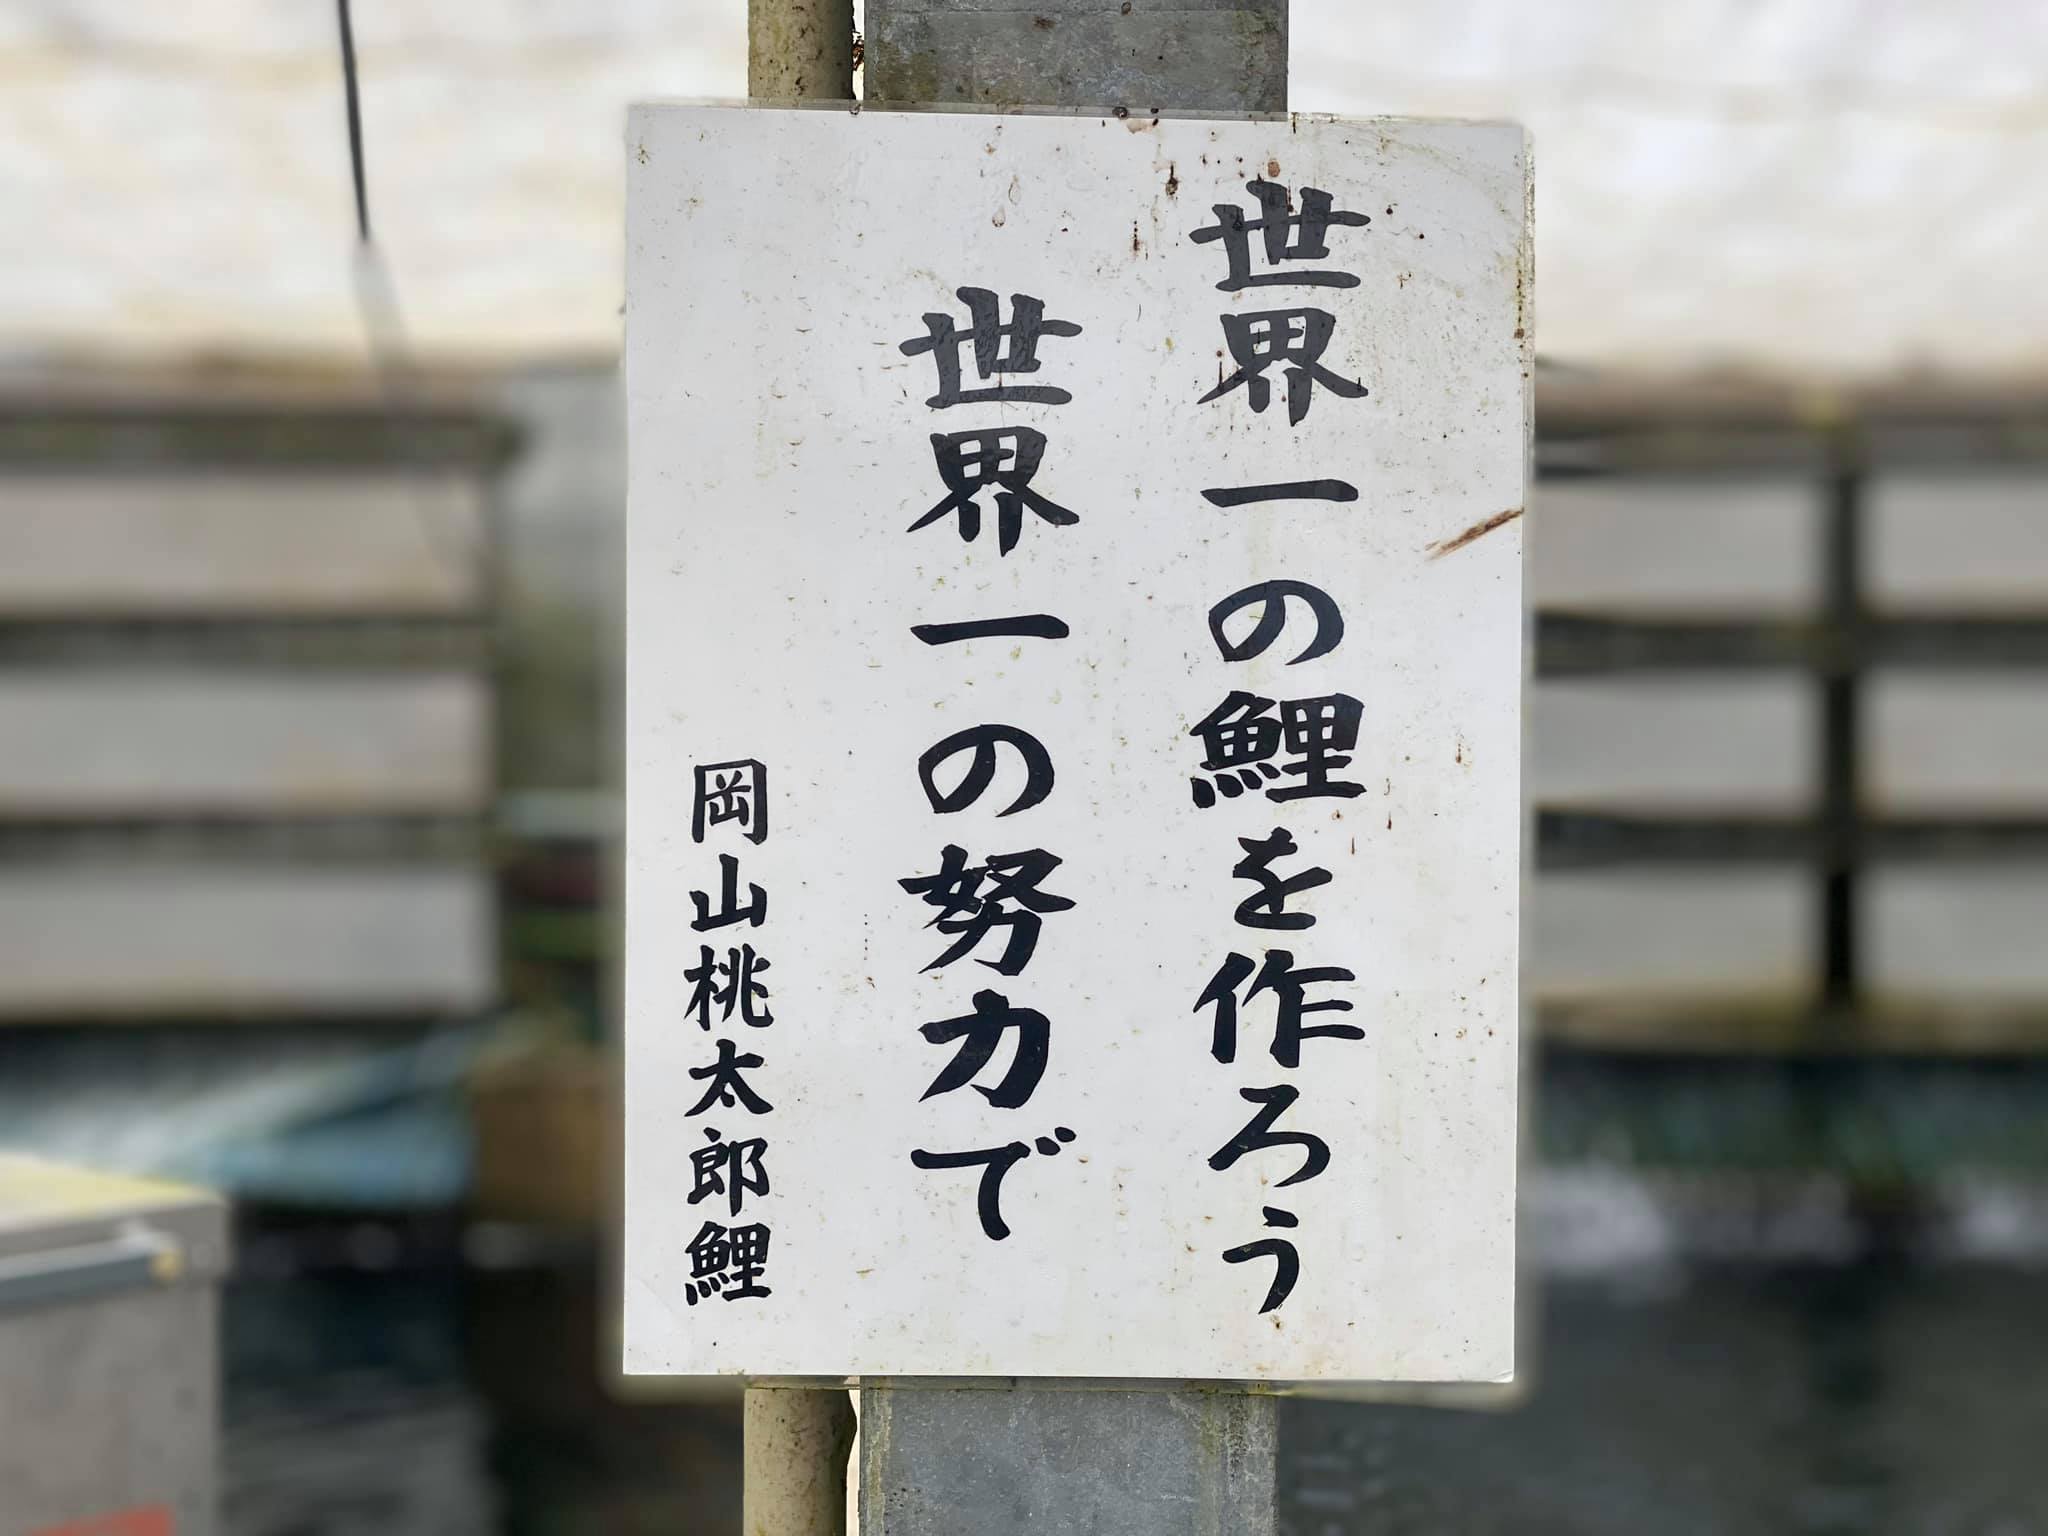 世界一の鯉を作ろう
世界一の努力で
岡山桃太郎鯉